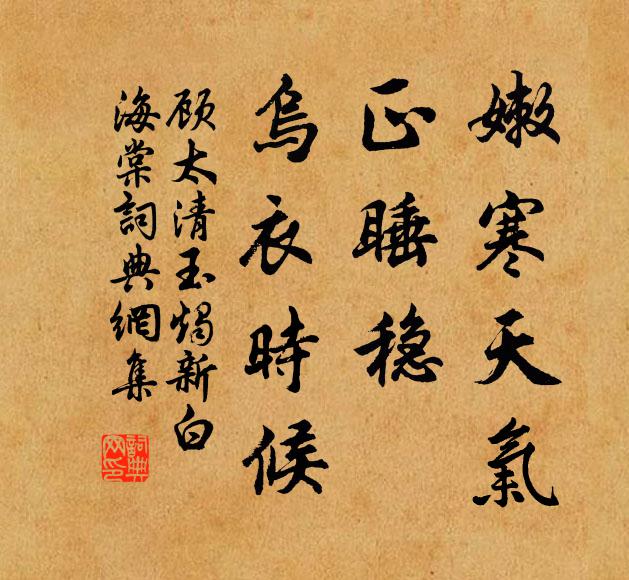 嫩寒天氣
正睡穩
烏衣時候
顾太清玉燭新白
海棠詞典網集
詞典网印